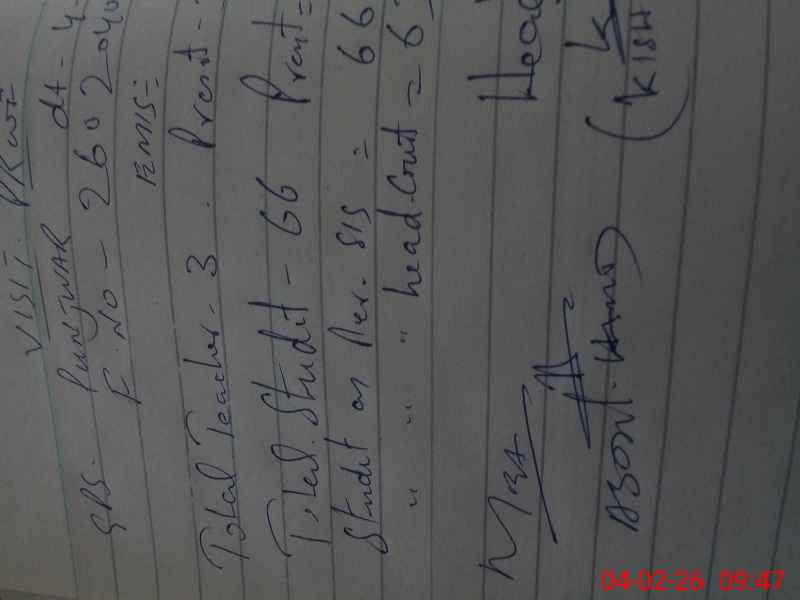 VISIT.
GPS. PUNJWAR dt - 4
F. NO - 2602040
EMIS =
Total Teacher - 3. Prent -
Total. Studit - 66 Prent =
Studit as Per. SIS = 66
" " " head-Count = 6
Head
(KISH
04-02-26 09:47